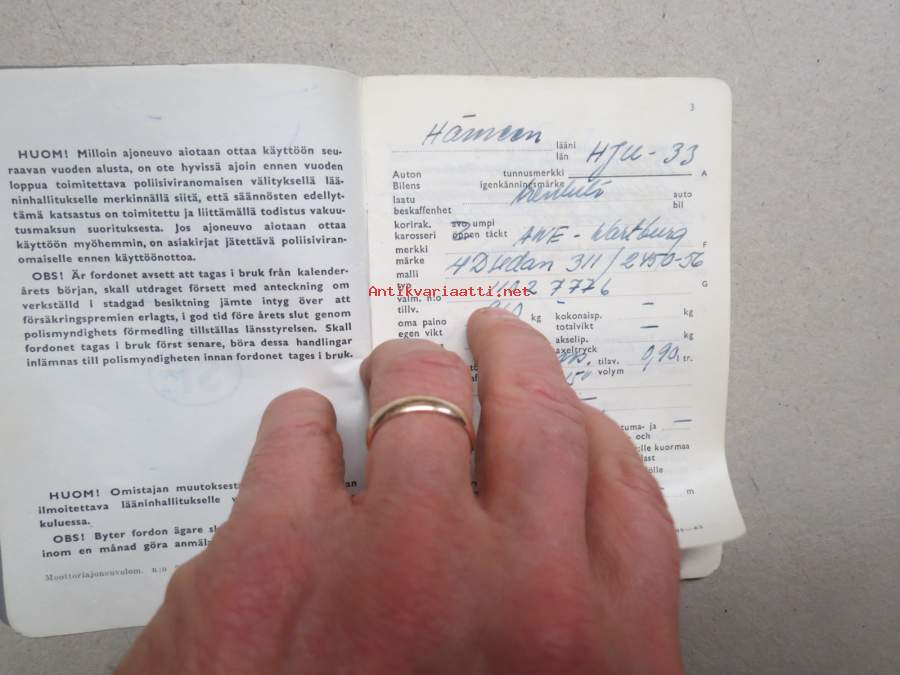 HUOM! Milloin ajoneuvo aiotaan ottaa käyttöön seu-
raavan vuoden alusta, on ote hyvissä ajoin ennen vuoden
loppua toimitettava poliisiviranomaisen välityksellä lää-
ninhallitukselle merkinnällä siitä, että säännösten edellyt-
tämä katsastus on toimitettu ja liittämällä todistus vakuu-
tusmaksun suorituksesta. Jos ajoneuvo aiotaan ottaa
käyttöön myöhemmin, on asiakirjat jätettävä poliisiviran-
omaiselle ennen käyttöönottoa.
OBS! Är fordonet avsett att tagas i bruk från kalender-
årets början, skall utdraget försett med anteckning om
verkställd i stadgad besiktning jämte intyg över att
försäkringspremien erlagts, i god tid före årets slut genom
polismyndighets förmedling tillställas länsstyrelsen. Skall
fordonet tagas i bruk först senare, böra dessa handlingar
inlämnas till polismyndigheten innan fordonet tages i bruk.
HUOM! Omistajan muutoksesta
ilmoitettava lääninhallitukselle
kuluessa.
OBS! Byter fordon ägare
inom en månad göra anmäla
Moottoriajoneuvolom. n:o
3
Hämeen lääni
län
HJU-33
Auton tunnusmerkki A
Bilens igenkänningsmärke
laatu auto
beskaffenhet bil
korirak. avo umpi
karosseri öppen täckt
AWE-Wartburg
merkki F
märke
malli 4D Sedan 311/2450-56
typ G
Antikvariaatti.net
valm. n:o 27776
tillv.
oma paino kg kokonaisp. — kg
egen vikt totalvikt
akselip. — kg
axeltryck
tilav. 0,90 tr.
volym
tuma- ja —
och
:lle kuormaa
last
m